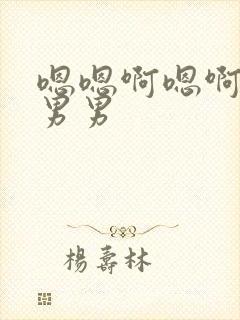 嗯嗯啊嗯啊
男男
楊壽林